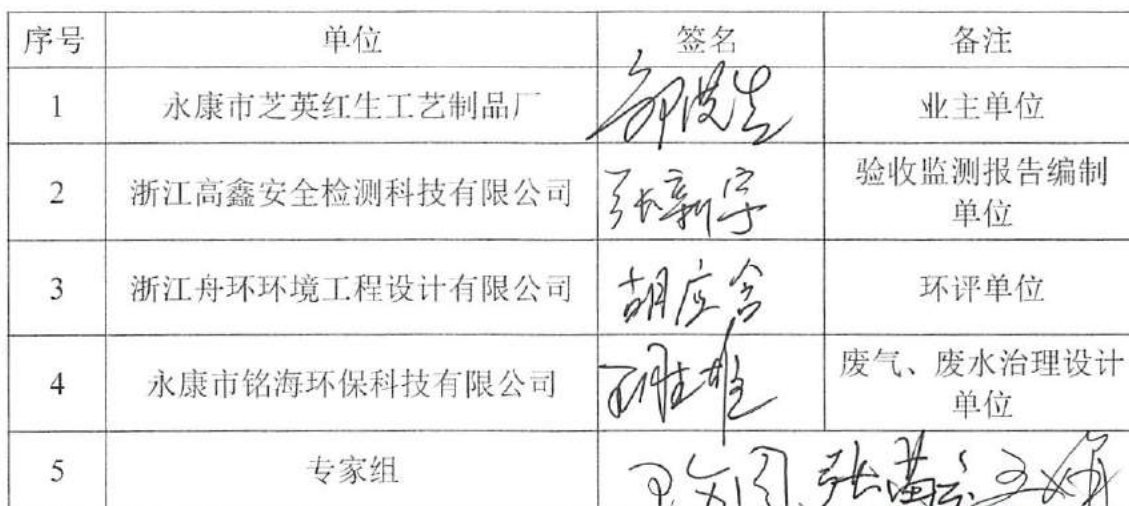 序号 单位 签名 备注
1 永康市芝英红生工艺制品厂 业主单位
2 浙江高鑫安全检测科技有限公司 张新宇 验收监测报告编制
单位
3 浙江舟环环境工程设计有限公司 胡应含 环评单位
4 永康市铭海环保科技有限公司 废气、废水治理设计
单位
5 专家组